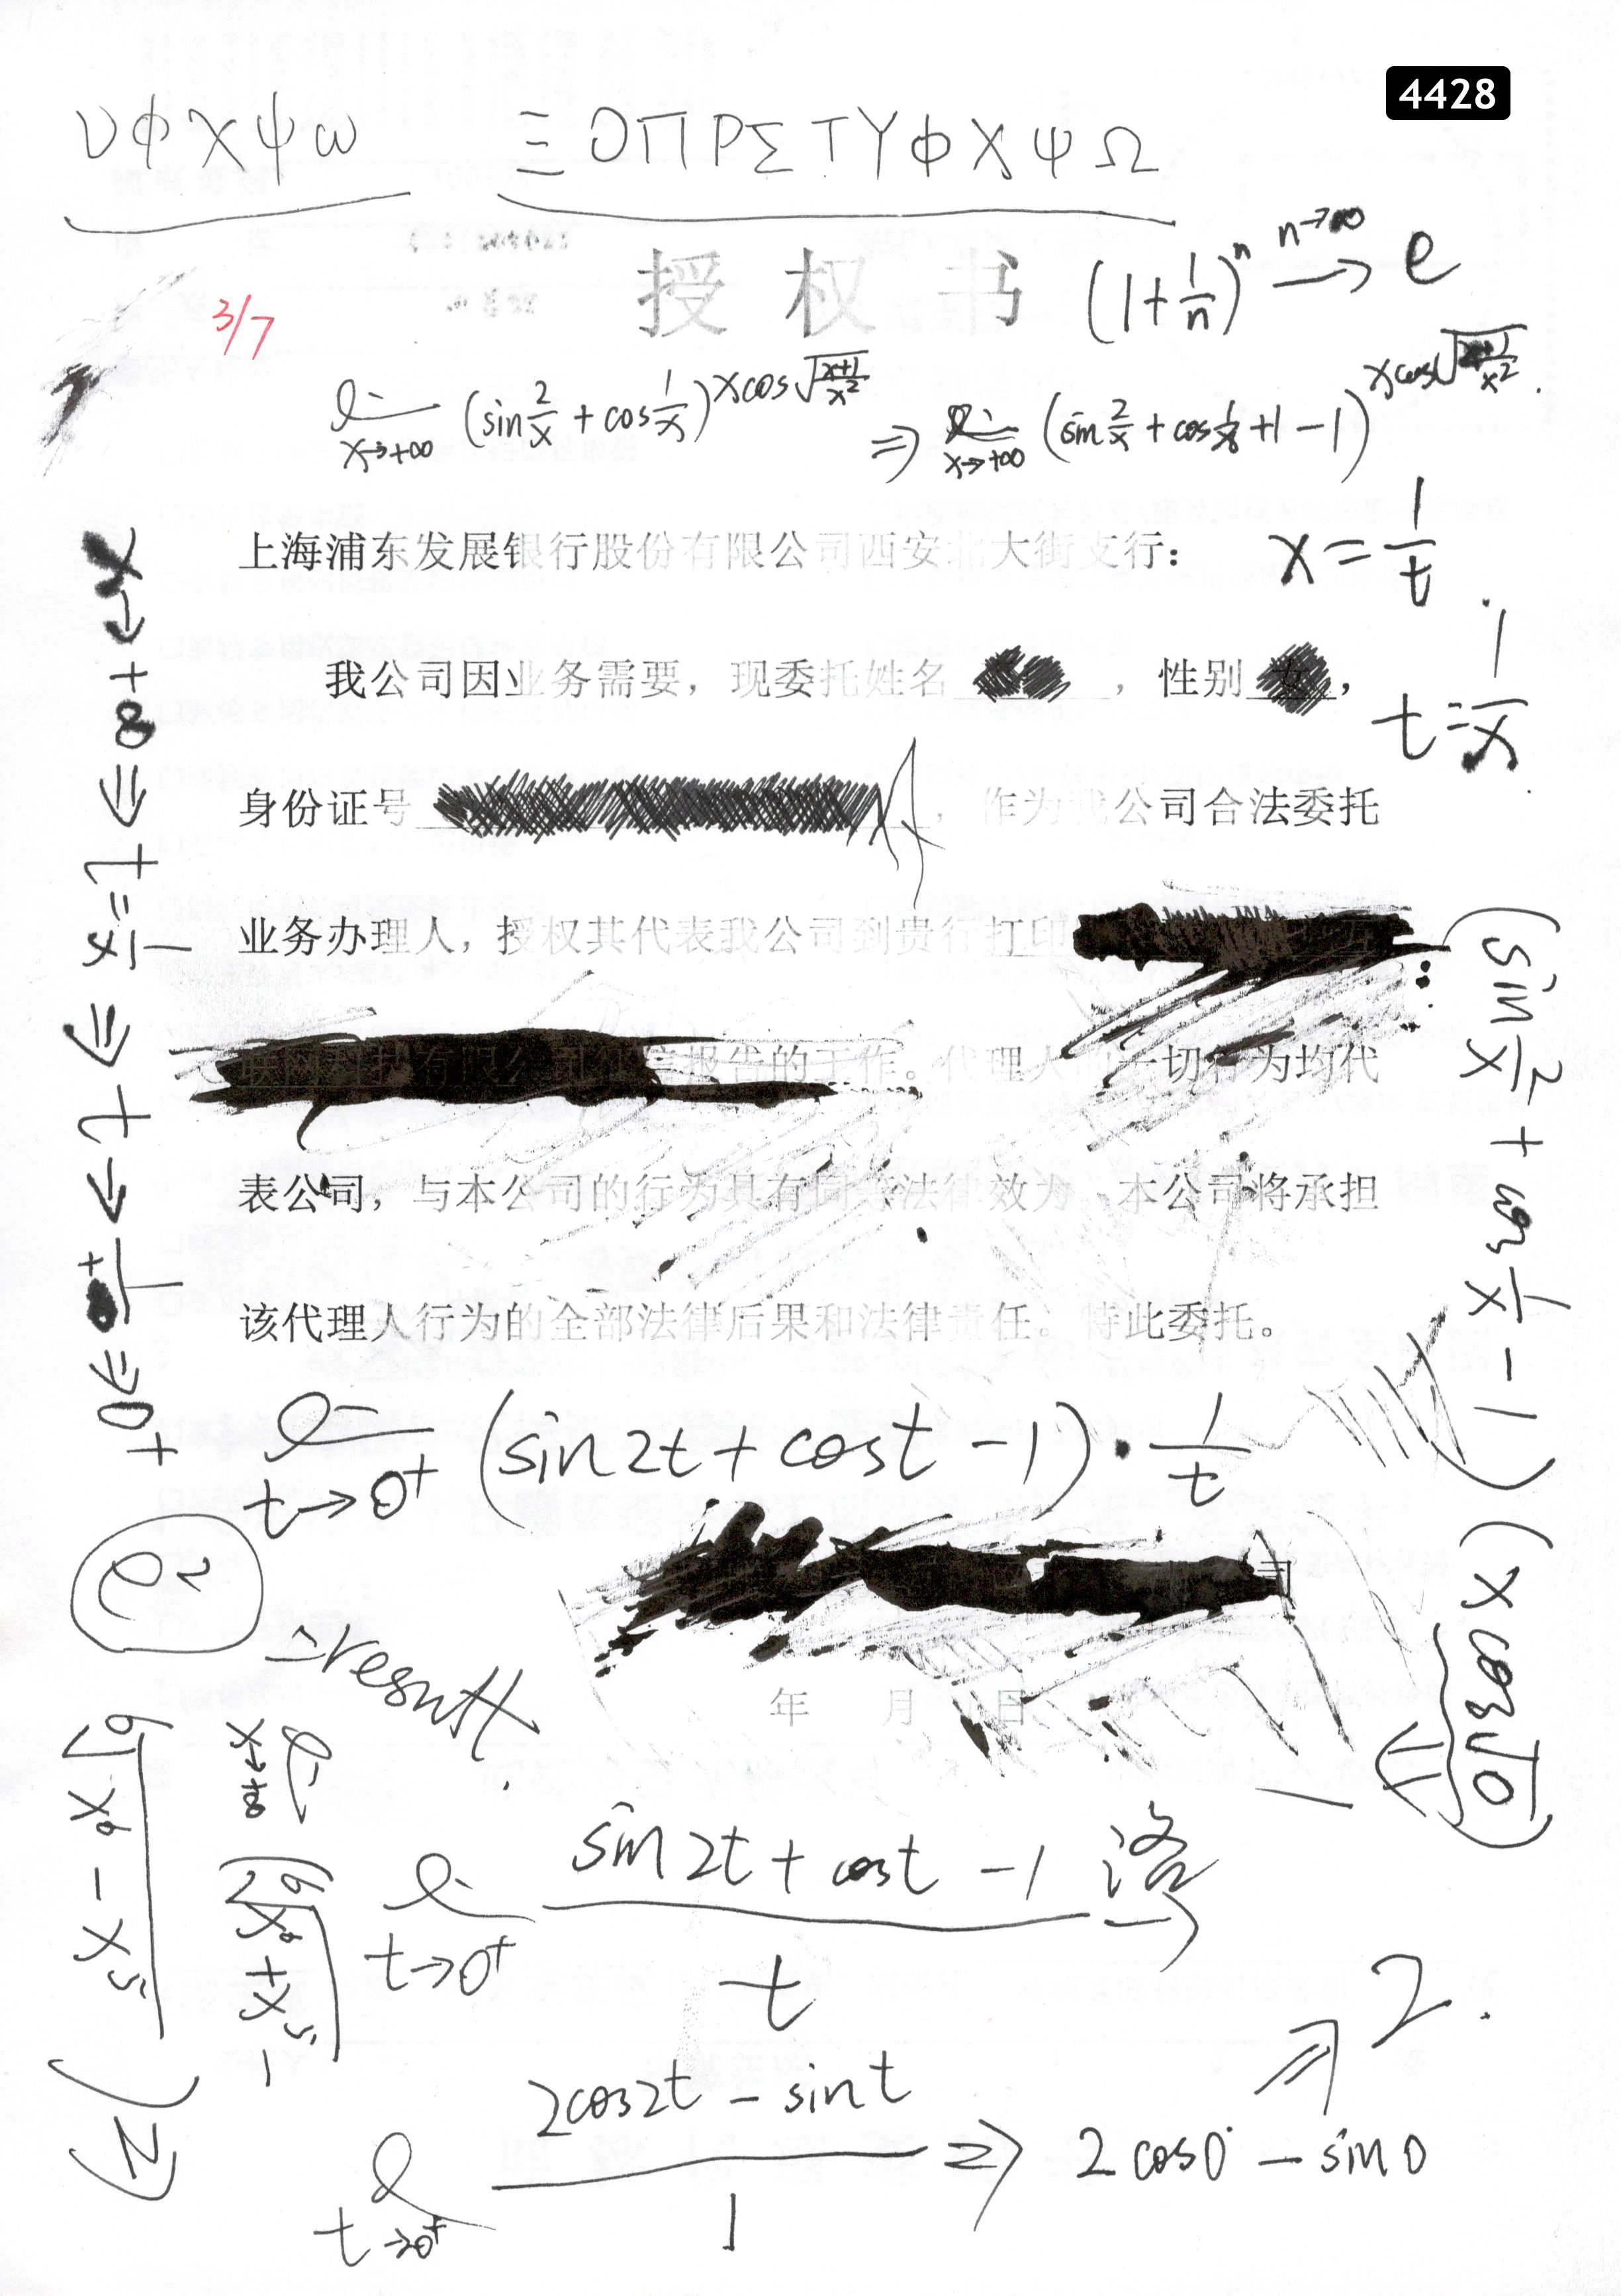 4428
υ φ χ ψ ω Ξ Ο Π Ρ Σ Τ Υ Φ Χ Ψ Ω
授 权 书
(1+1/n)^n n→∞ → e
3/7
lim x→+∞ (sin 2/x + cos 1/x)^(x cos √((x+1)/x²)) ⇒ lim x→+∞ (sin 2/x + cos 1/x + 1 − 1)^(x cos √((x+1)/x²)).
上海浦东发展银行股份有限公司西安北大街支行：
x = 1/t
我公司因业务需要，现委托姓名 ，性别 ，
t = 1/x
身份证号 ，作为我公司合法委托
业务办理人，授权其代表我公司到贵行打印
联网科技有限公司征信报告的工作。代理人的一切行为均代
表公司，与本公司的行为具有同等法律效力 本公司将承担
该代理人行为的全部法律后果和法律责任。特此委托。
x → +∞ ⇒ t = 1/x ⇒ t → 1/∞+ ⇒ 0+
(sin 2/x + cos 1/x − 1)(x cos √0) (1)
lim t→0+ (sin 2t + cos t − 1) · 1/t
e²
= result.
司
年 月 日
lim t→0+ (sin 2t + cos t − 1)/t 洛
lim x→+∞ (⁶√(x⁶ + x⁵) −
⁶√(x⁶ − x⁵) ) 2)
lim t→0+ (2cos2t − sint)/1 ⇒ 2 cos0 − sin0
⇒ 2.